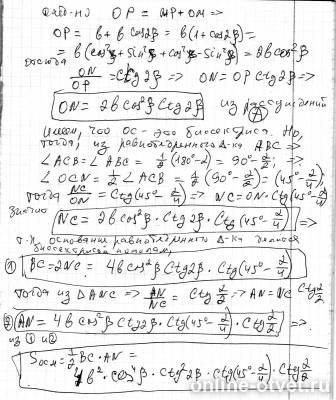 OP = MP+OM =>
OP = b + b cos2β = b(1+cos2β) =
= b(cos²β + sin²β + cos²β - sin²β) = 2b cos²β
отсюда ON/OP = Ctg2β => ON = OP Ctg2β =>
ON = 2b cos²β Ctg2β из рассуждений
Имеем, что OC - это биссектриса. Но,
тогда, из равнобедренного Δ-ка ABC =>
∠ACB = ∠ABC = 1/2(180°-2) = 90° - 2/2; =>
∠OCN = 1/2∠ACB = 1/2(90° - 2/2) = (45° - 2/4),
тогда NC/ON = Ctg(45° - 2/4) => NC = ON·Ctg(45° - 2/4)
Значит
NC = 2b cos²β·Ctg2β·Ctg(45° - 2/4) =>
т.к. основание равнобедренного Δ-ка делится
биссектрисой пополам,
① BC = 2NC = 4b cos²β Ctg2β·Ctg(45° - 2/4)
тогда из ΔANC => AN/NC = Ctg 2/2 => AN = NC Ctg 2/2
② AN = 4b cos²β Ctg2β·Ctg(45° - 2/4)·Ctg 2/2 =>
из ① и ②
Sосн = 1/2 BC·AN =
4b²·cos⁴β·Ctg²2β·Ctg(45° - 2/4)·Ctg 2/2
online-otvet.ru